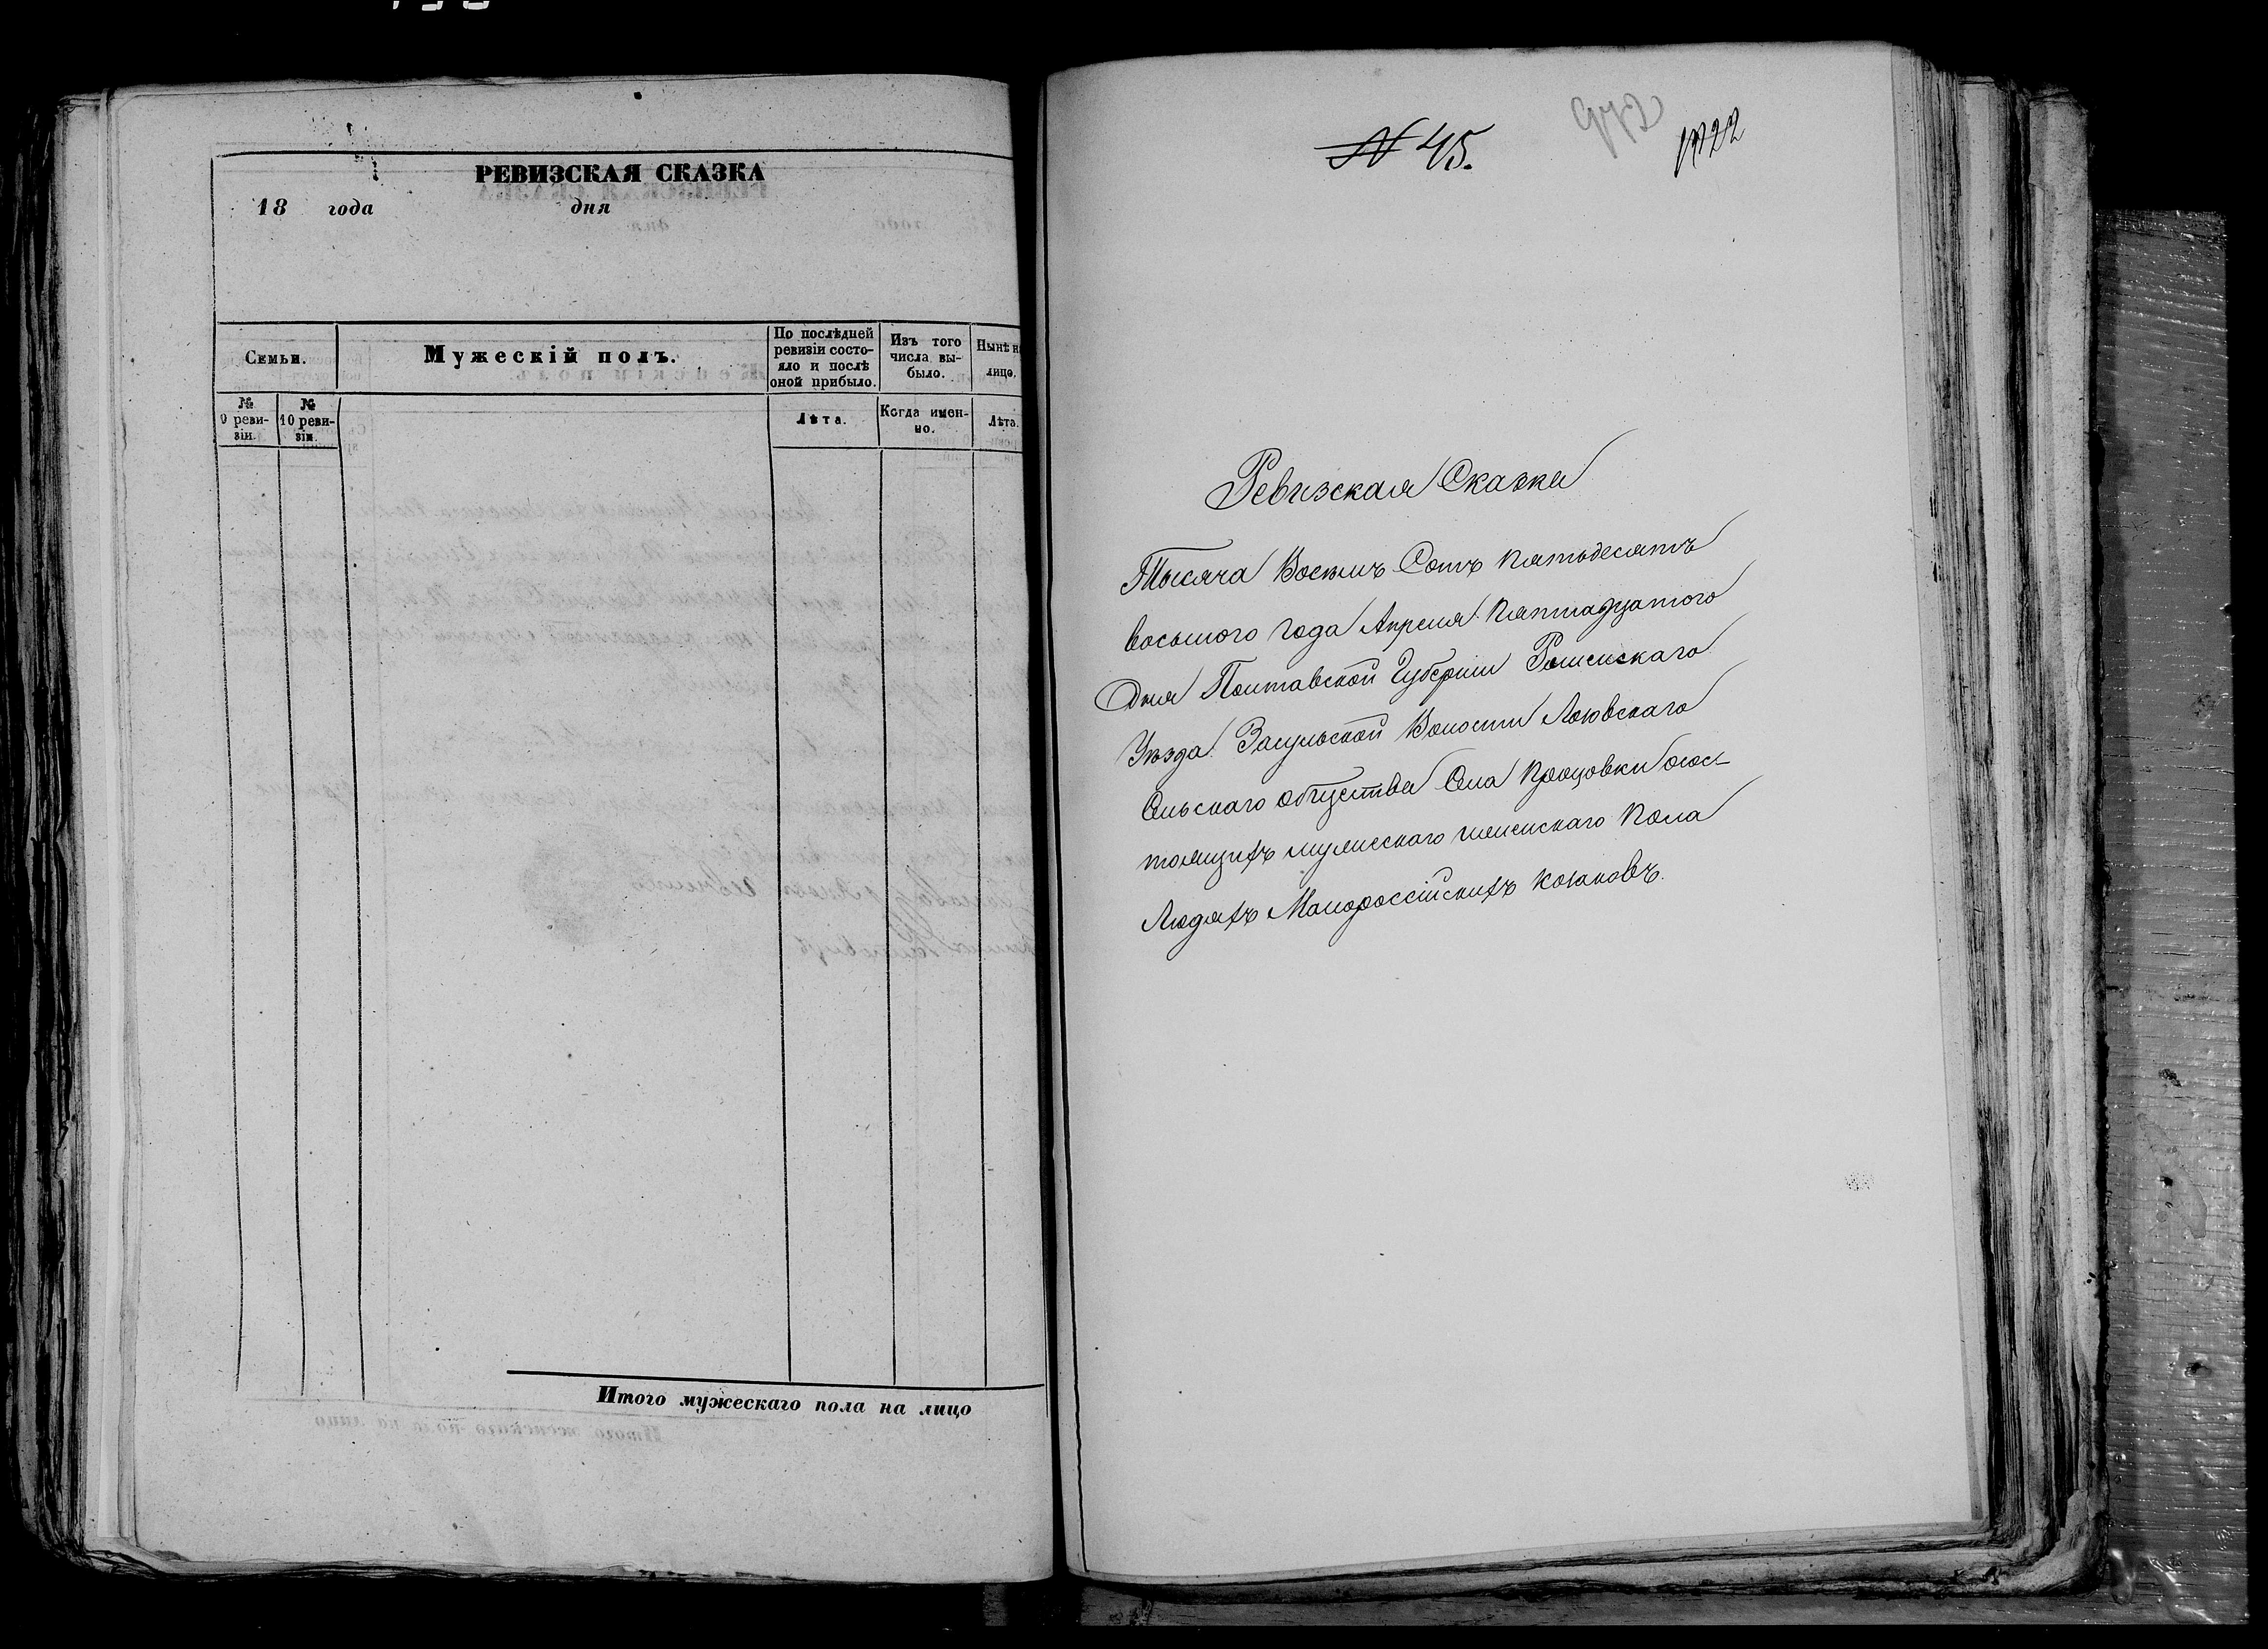 РЕВИЗСКАЯ СКАЗКА
18 года дня
Семьи.
Мужескій полъ.
По послѣдней
ревизіи состо-
яло и послѣ
оной прибыло.
Изъ того
числа вы-
было.
Нынѣ н
лицо.
№
9 реви-
зіи.
№
10 реви-
зіи.
Лѣта.
Когда имен-
но.
Лѣта.
Итого мужескаго пола на лицо
№ 45.
972
1022
Ревизская Сказка
Тысяча Восемъ Сотъ пятьдесятъ
восьмого года Апреля пятнадцатого
Дня Полтавской Губерніи Роменскаго
Уезда Засульской Волости
Сельскаго общества Села Процовки сос-
тоящихъ мужескаго женскаго пола
Людяхъ Малороссійскихъ козаковъ.